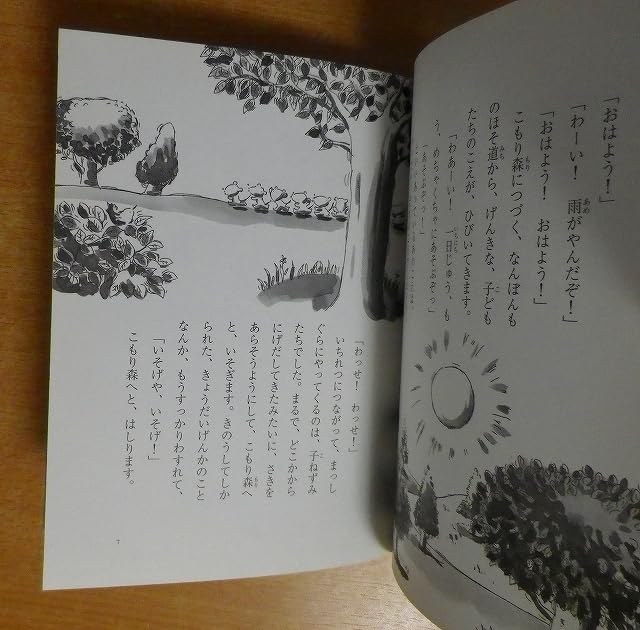 「おはよう！」
「わーい！　雨がやんだぞ！」
「おはよう！　おはよう！」
こもり森につづく、なんぼんも
のほそ道から、げんきな、子ども
たちのこえが、ひびいてきます。
「わあーい！　一日じゅう、も
う、めちゃくちゃにあそぶぞっ」
「あそぶぞっ！」
「わっせ！　わっせ！」
いちれつにつながって、まっし
ぐらにやってくるのは、子ねずみ
たちでした。まるで、どこかから
にげだしてきたみたいに、さきを
あらそうようにして、こもり森へ
と、いそぎます。きのうしてしか
られた、きょうだいげんかのこと
なんか、もうすっかりわすれて、
「いそげや、いそげ！」
こもり森へと、はしります。
7